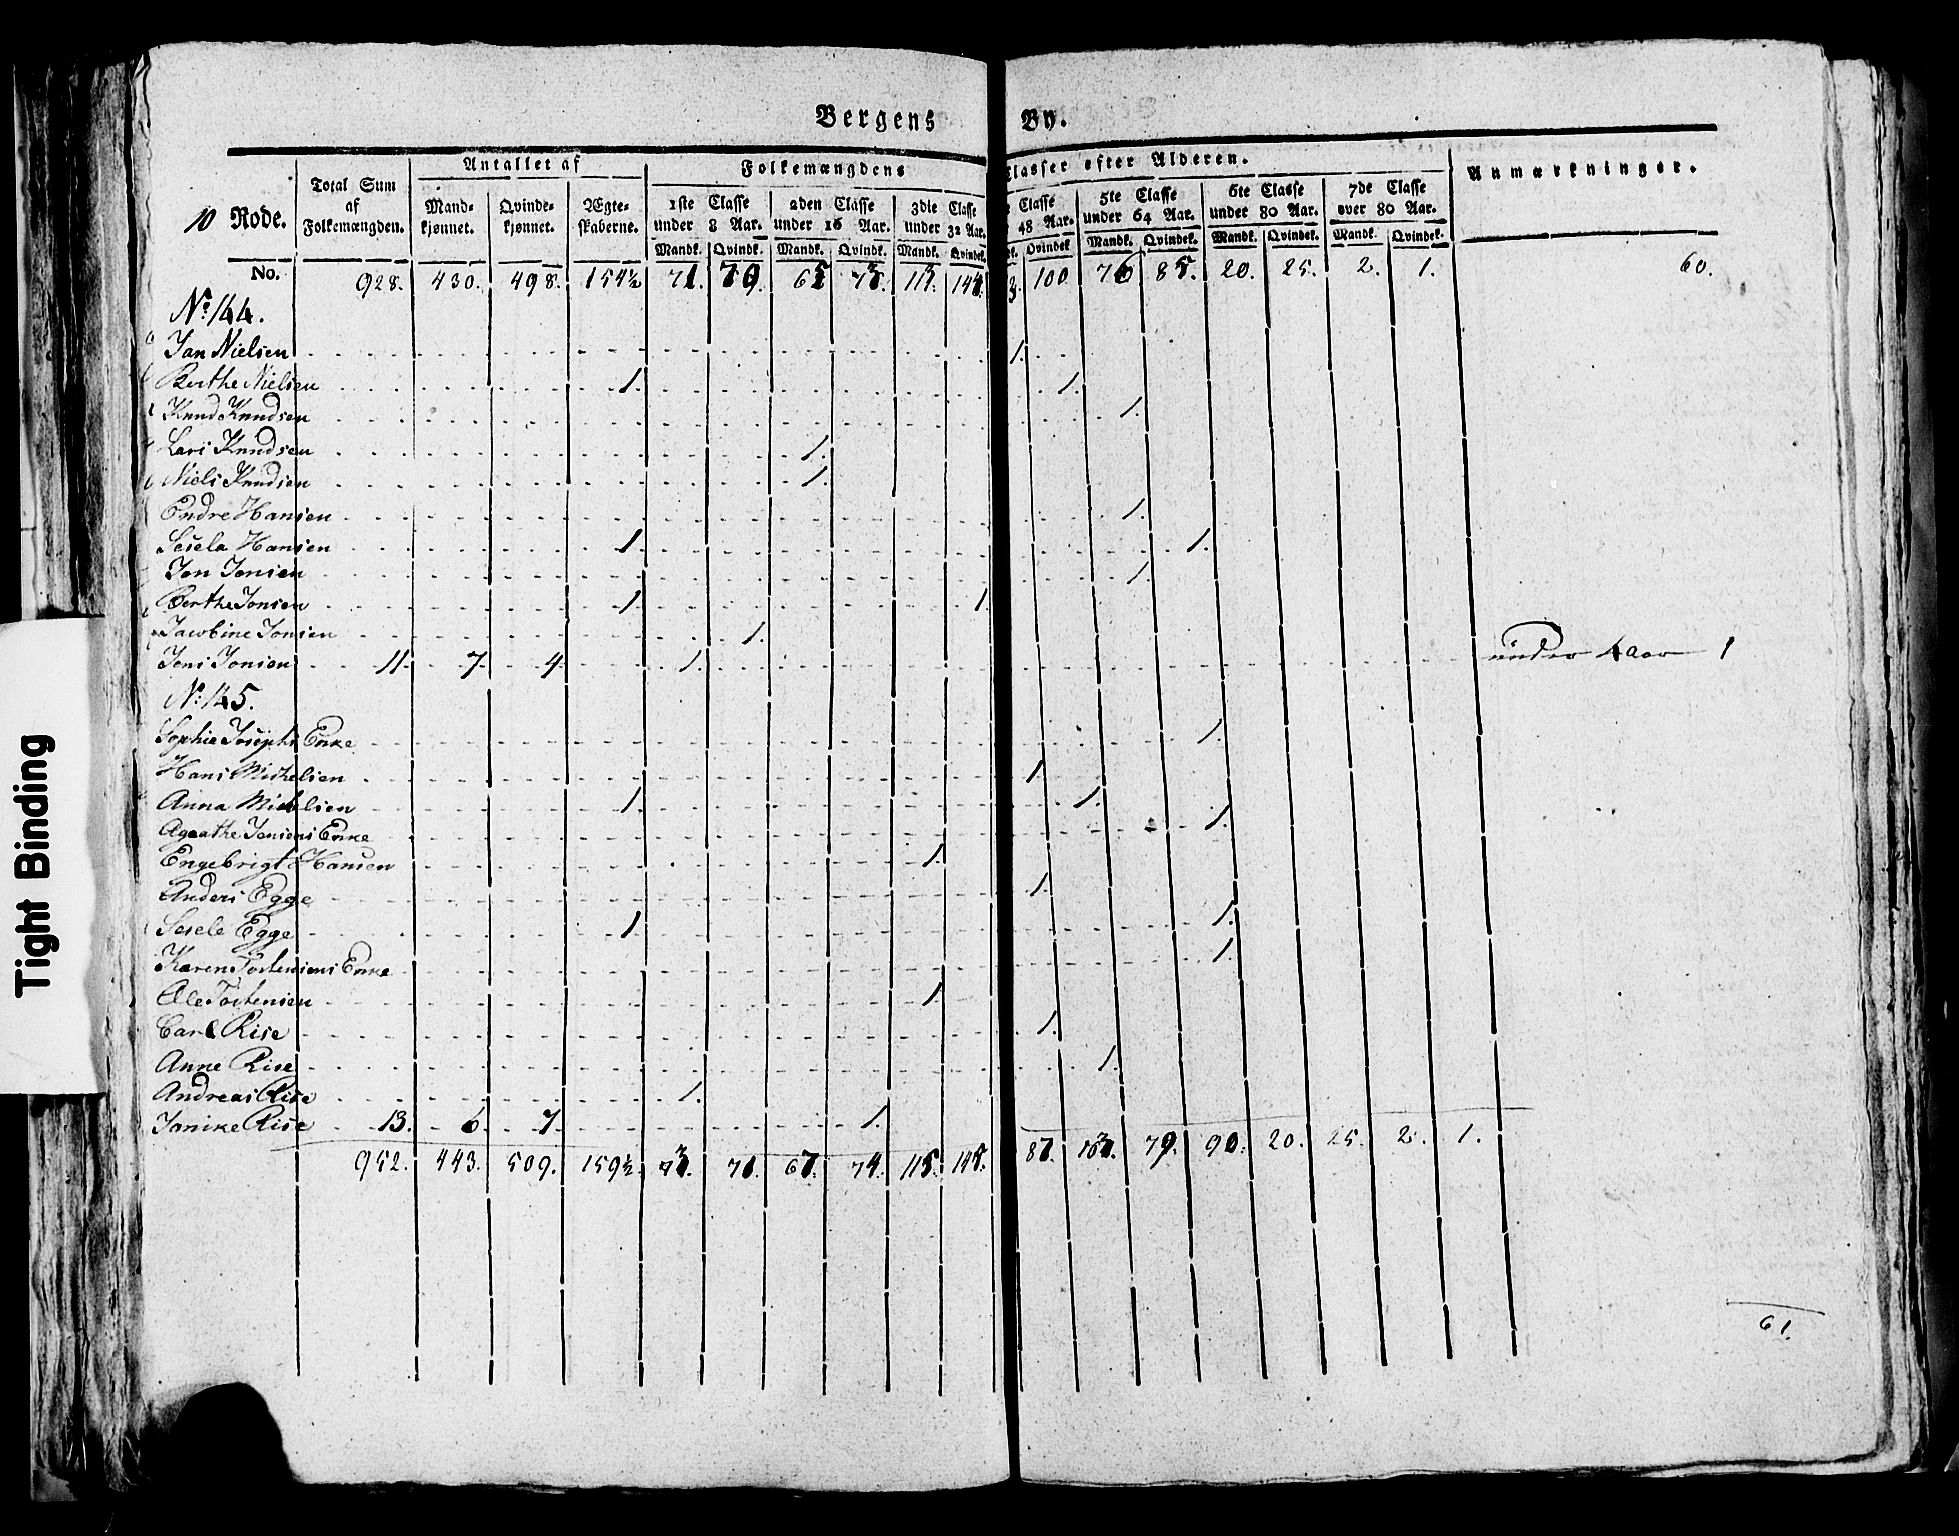 Bergens By.
10 Rode. Total Sum af Folkemængden. Antallet af Mandkjønnet. Qvindekjønnet. Ægteskaberne. Folkemængdens Classer efter Alderen. Anmærkninger.
1ste Classe under 8 Aar. 2den Classe under 16 Aar. 3die Classe under 32 Aar. Classe 48 Aar. 5te Classe under 64 Aar. 6te Classe under 80 Aar. 7de Classe over 80 Aar.
Mandk. Qvindk. Mandk. Qvindk. Mandk. Qvindek. Qvindek. Mandk. Qvindek. Mandk. Qvindek. Mandk. Qvindek.
No. 928. 430. 498. 154½ 100 20. 25. 2. 1. 60.
No. 144.
Jan Nielsen 1.
Berthe Nielsen 1. 1.
Knud Knudsen 1.
Lars Knudsen 1.
Niels Knudsen 1.
Endre Hansen 1.
Sesela Hansen 1 1.
Jon Jonsen 1
Berthe Jonsen 1 1
Jacobine Jonsen 1.
Jens Jonsen 11. 7. 4. 1. under 4 aar 1
No. 145.
Sophie Josephs Enke 1.
Hans Michelsen 1
Anna Michelsen 1. 1.
Agathe Jensens Enke 1.
Engebrigt Hansen 1.
Anders Egge 1.
Sesele Egge 1 1.
Karen Tostensens Enke 1.
Ole Tostensen 1
Carl Rise 1.
Anne Rise 1.
Andreas Rise 1.
Janike Rise 13. 6. 7. 1.
952. 443. 509. 159½ 73. 71. 67. 74. 115. 145. 87. 103. 79. 90. 20. 25. 2. 1.
61.
Tight Binding